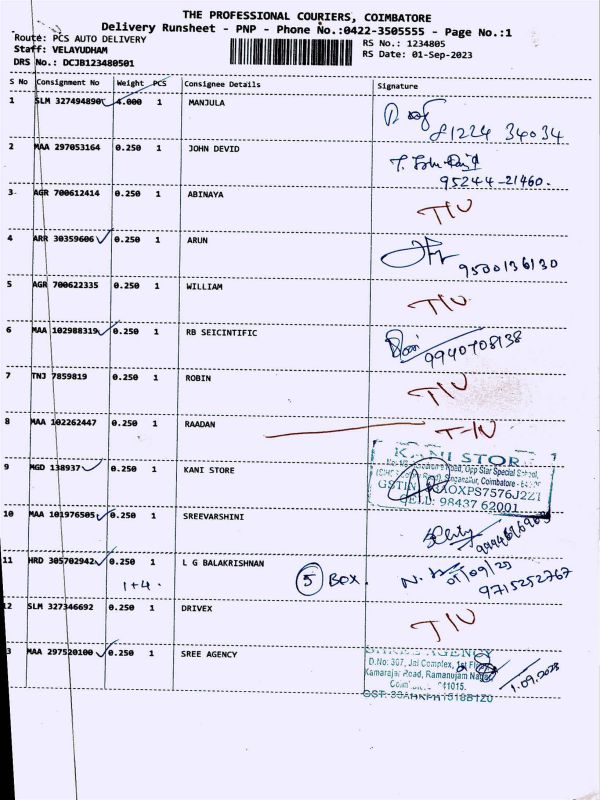 THE PROFESSIONAL COURIERS, COIMBATORE
Delivery Runsheet - PNP - Phone No.:0422-3505555 - Page No.:1
Route: PCS AUTO DELIVERY
Staff: VELAYUDHAM
DRS No.: DCJB123480501
RS No.: 1234805
RS Date: 01-Sep-2023
S No Consignment No Weight PCS Consignee Details Signature
1 SLM 327494890 4.000 1 MANJULA
81224 34034
2 MAA 297053164 0.250 1 JOHN DEVID
95244-21460.
3 AGR 700612414 0.250 1 ABINAYA T/U
4 ARR 30359606 0.250 1 ARUN
9500136130
5 AGR 700622335 0.250 1 WILLIAM T/U
6 MAA 102988319 0.250 1 RB SEICINTIFIC
9940708138
7 TNJ 7859819 0.250 1 ROBIN T/U
8 MAA 102262447 0.250 1 RAADAN T-/U
KANI STOR
9 MGD 138937 0.250 1 KANI STORE
Opp Star Special School,
Singanallur, Coimbatore
GSTIN
CELL: 98437 62001
10 MAA 101976505 0.250 1 SREEVARSHINI
11 HRD 305702942 0.250 1 L G BALAKRISHNAN
1+4. 5 BOX. 01/09/23
9715252767
12 SLM 327346692 0.250 1 DRIVEX T/U
3 MAA 297520100 0.250 1 SREE AGENCY
AGENCY
D.No: 307, Jai Complex, 1st Floor
Kamarajar Road, Ramanujam Nagar,
641015.
1.09.2023